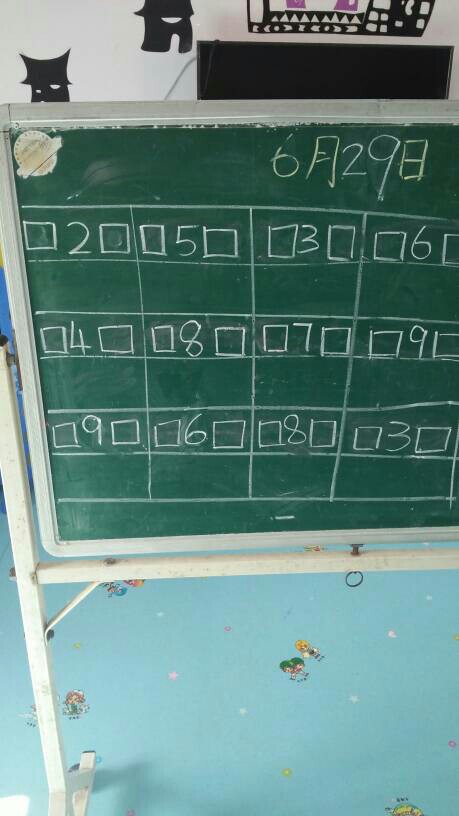 6月29日
□2□ □5□ □3□ □6□
□4□ □8□ □7□ □9□
□9□ □6□ □8□ □3□